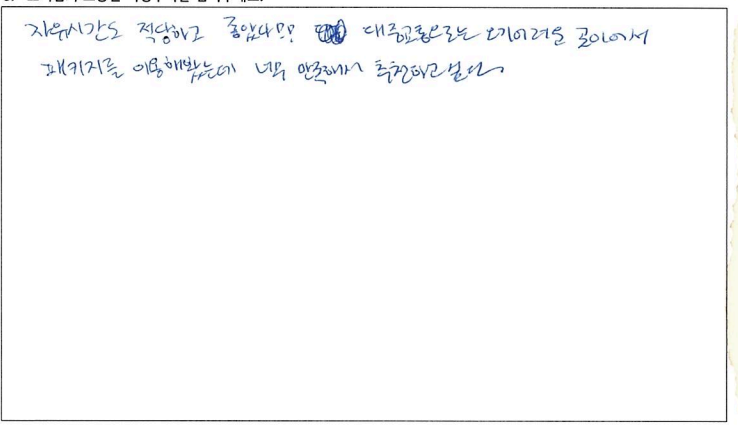 자유시간도 적당하고 좋았다!! 대중교통으로는 오기어려운 곳이어서
패키지를 이용해봤는데 너무 만족해서 추천하고싶다.